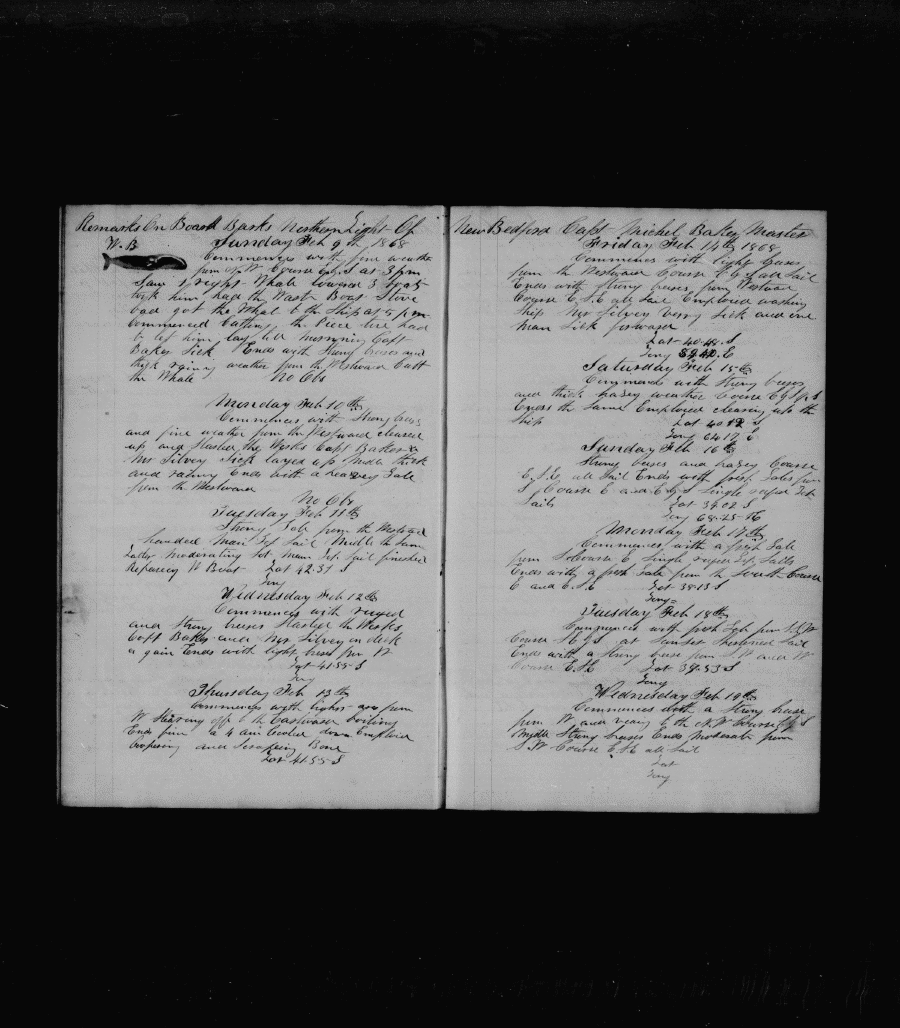 Remarks On Board Bark Northern Light Of
W. B Sunday Feb 9th 1868
Commences with fine weather
from S W Course E by S at 3 pm
Saw right Whale lowered 3 boats
took him had the Wast Boat Stove
bad got the Whal to the Ship at 5 pm
Commenced Cutting the had
to let him lay till morning Capt
Baker Sick Ends with Strong breses and
thick rainy weather from the Westward Cutt
the Whale No Obs
Monday Feb 10th
Commences with Strong breses
and fine weather from the Westward cleared
up and Started the Works Capt Baker &
Mr Silvey sick layed up Middle thick
and rainy Ends with a heavey Gale
from the Westward
No Obs
Tuesday Feb 11th
Strong Gale from the Westward
handed Main Top Sail Middle the Same
Latter Moderating Set Main Top Sail finished
Repareing W Boat Lat 42.37 S
Long
Wednesday Feb 12th
Commences with ruged
and Strong breses Started the Works
Capt Baker and Mr Silvey on deck
a gain Ends with light breses from W
Lat 41.55 S
Long
Thursday Feb 13th
Commences with light from
W Stearing off to the Eastward boiling
Ends fine a 4 am Cooled down Employed
and Scrapeing Bone
Lat 41.55 S
New Bedford Capt Michel Baker Master
Friday Feb 14th 1868
Commences with light breses
from the Westward Course E by S all Sail
Ends with strong breses from Westward
Course E.S.E all Sail Employed washing
Ship Mr Silvey very Sick and one
man Sick forward
Lat 40.48 S
Long E
Saturday Feb 15th
Commences with Strong breses
and thick hazey weather Course E by S
Ends the Same Employed clearing up the
Ship Lat 40.12 S
Long 64.17 E
Sunday Feb 16th
Strong breses and hazey Course
E.S.E. all Sail Ends with fresh Gales from
S Course E and E by S Single reefed Top
Sails Lat 39.02 S
Long 68.25
Monday Feb 17th
Commences with a fresh Gale
from S Course E Single reefed Top Sails
Ends with a fresh Gale from the South Course
E and E.S.E Lat 38.13 S
Long
Tuesday Feb 18th
Commences with fresh Gale from
Course at Sunset Shortened Sail
Ends with a Strong brese from S W and W
Course E.S.E Lat 39.53 S
Long
Wednesday Feb 19th
Commences with a Strong brese
from W and to the N.W Course E by S
Middle Strong breses Ends Moderate from
S.W Course E.S.E all Sail
Lat
Long